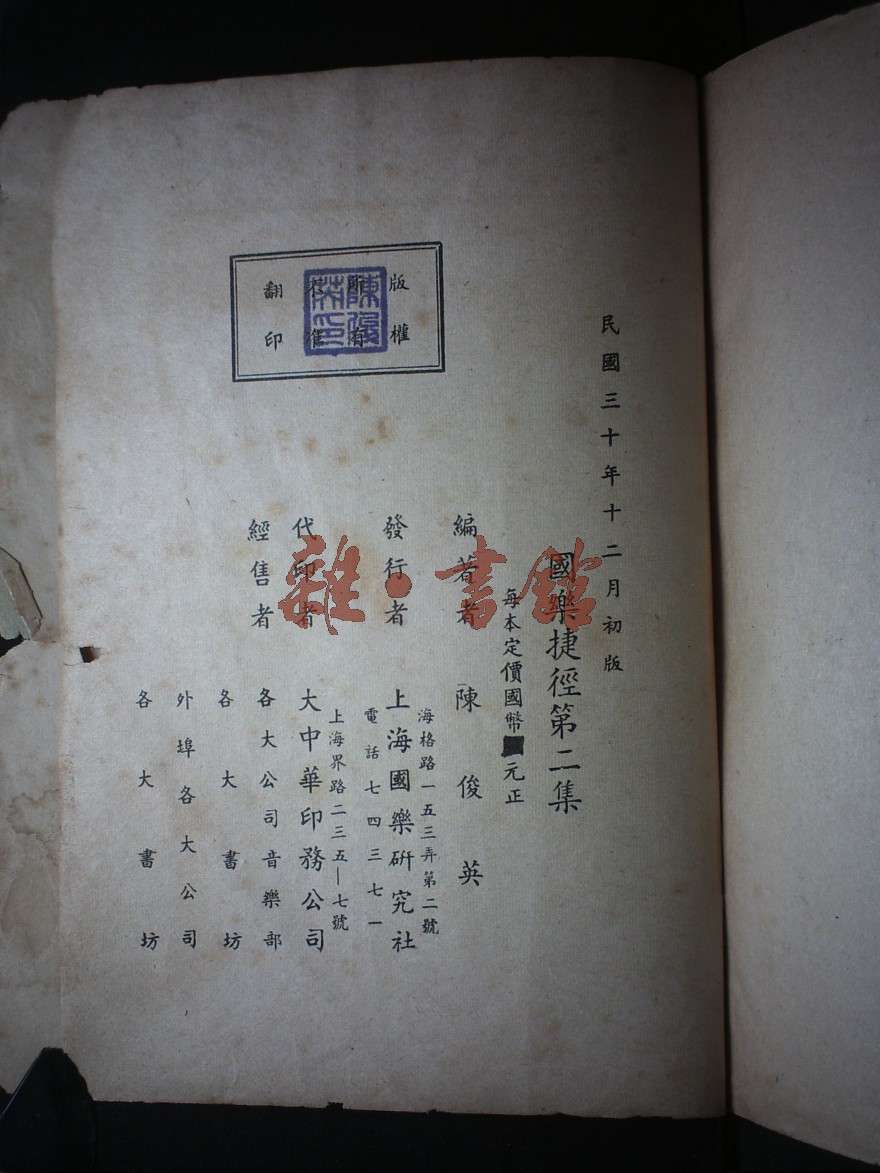 民國三十年十二月初版
國樂捷徑第二集
每本定價國幣元正
編著者　陳俊英
發行者　上海國樂研究社
海格路一五三弄第二號
電話七四三七一
代印者　大中華印務公司
上海界路二三五—七號
經售者　各大公司音樂部
各大書坊
外埠各大公司
各大書坊
版權
所有
不准
翻印
陳俊英印
雜·書館